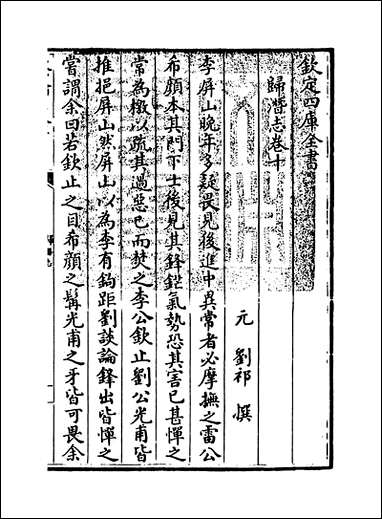 欽定四庫全書
歸潛志卷十
元 劉祁 撰
李屏山晚年多疑畏見後進中異常者必摩撫之雷公
希顔本其門下士後見其鋒鋩氣勢恐其害已甚憚之
常為檄以疏其過惡已而焚之李公欽止劉公光甫皆
推挹屏山然屏山以為李有鈎距劉談論鋒出皆憚之
嘗謂余曰若欽止之目希顔之髯光甫之牙皆可畏余